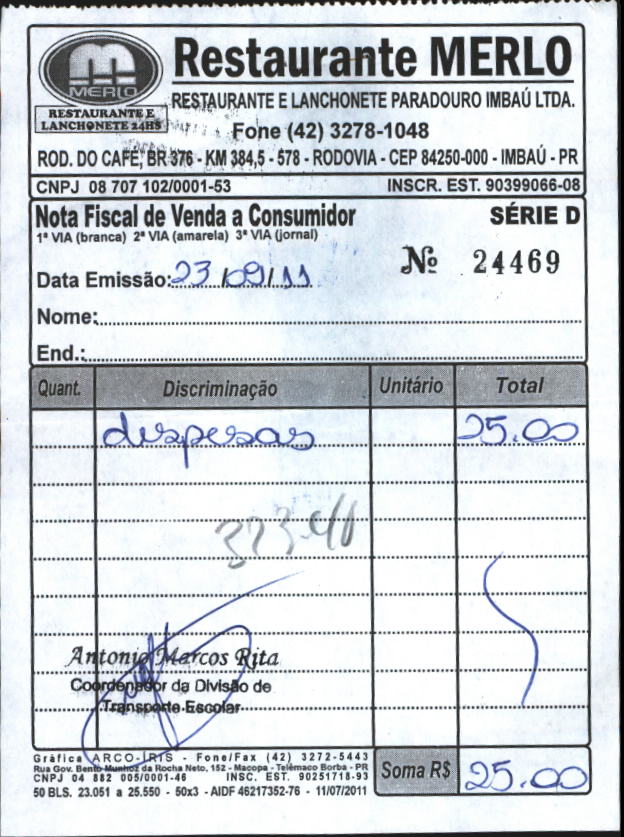 MERLO
RESTAURANTE E
LANCHONETE 24HS
Restaurante MERLO
RESTAURANTE E LANCHONETE PARADOURO IMBAÚ LTDA.
Fone (42) 3278-1048
ROD. DO CAFÉ, BR 376 - KM 384,5 - 578 - RODOVIA - CEP 84250-000 - IMBAÚ - PR
CNPJ 08 707 102/0001-53 INSCR. EST. 90399066-08
Nota Fiscal de Venda a Consumidor SÉRIE D
1ª VIA (branca) 2ª VIA (amarela) 3ª VIA (jornal)
Nº 24469
Data Emissão: 23/09/11
Nome:
End.:
Quant. Discriminação Unitário Total
despesas 25.00
Antonio Marcos Rita
Coordenador da Divisão de
Transporte Escolar
Gráfica ARCO-ÍRIS - Fone/Fax (42) 3272-5443
Rua Gov. Bento Munhoz da Rocha Neto, 152 - Macopa - Telêmaco Borba - PR
CNPJ 04 882 005/0001-46 INSC. EST. 90251718-93
50 BLS. 23.051 a 25.550 - 50x3 - AIDF 46217352-76 - 11/07/2011
Soma R$ 25.00